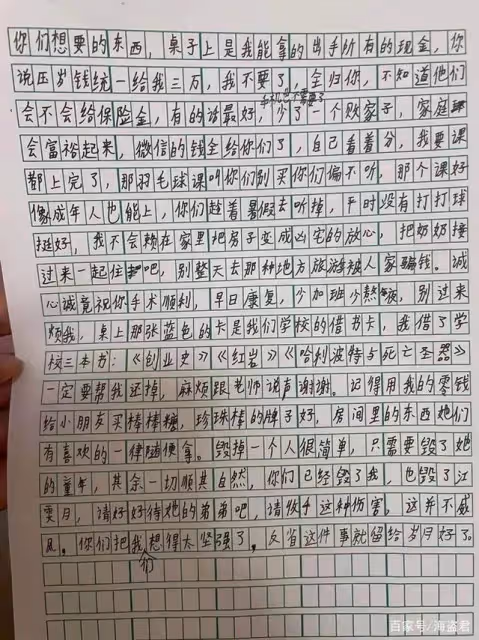 你们想要的东西，桌子上是我能拿的出手所有的现金，你
说压岁钱统一给我三万，我不要了，全归你，不知道他们
会不会给保险金，有的话最好，少了一个败家子，家庭
手机也不需要了
会富裕起来，微信的钱全给你们了，自己看着分，我要课
都上完了，那羽毛球课叫你们别买你们偏不听，那个课好
像成年人也能上，你们趁着暑假去听掉，平时没有打打球
挺好，我不会赖在家里把房子变成凶宅的放心，把奶奶接
过来一起住吧，别整天去那种地方旅游被人家骗钱。诚
心诚意祝你手术顺利，早日康复，少加班少熬夜，别过来
烦我，桌上那张蓝色的卡是我们学校的借书卡，我借了学
校三本书：《创业史》《红岩》《哈利波特与死亡圣器》
一定要帮我还掉，麻烦跟老师说声谢谢。记得用我的零钱
给小朋友买棒棒糖，珍珠棒的牌子好，房间里的东西她们
有喜欢的一律随便拿。毁掉一个人很简单，只需要毁了她
的童年，其余一切顺其自然，你们已经毁了我，也毁了江
月，请好好待她的弟弟吧，请收手这种伤害。这并不威
风。你们把我们想得太坚强了，反省这件事就留给岁月好了。
百家号/海盗君